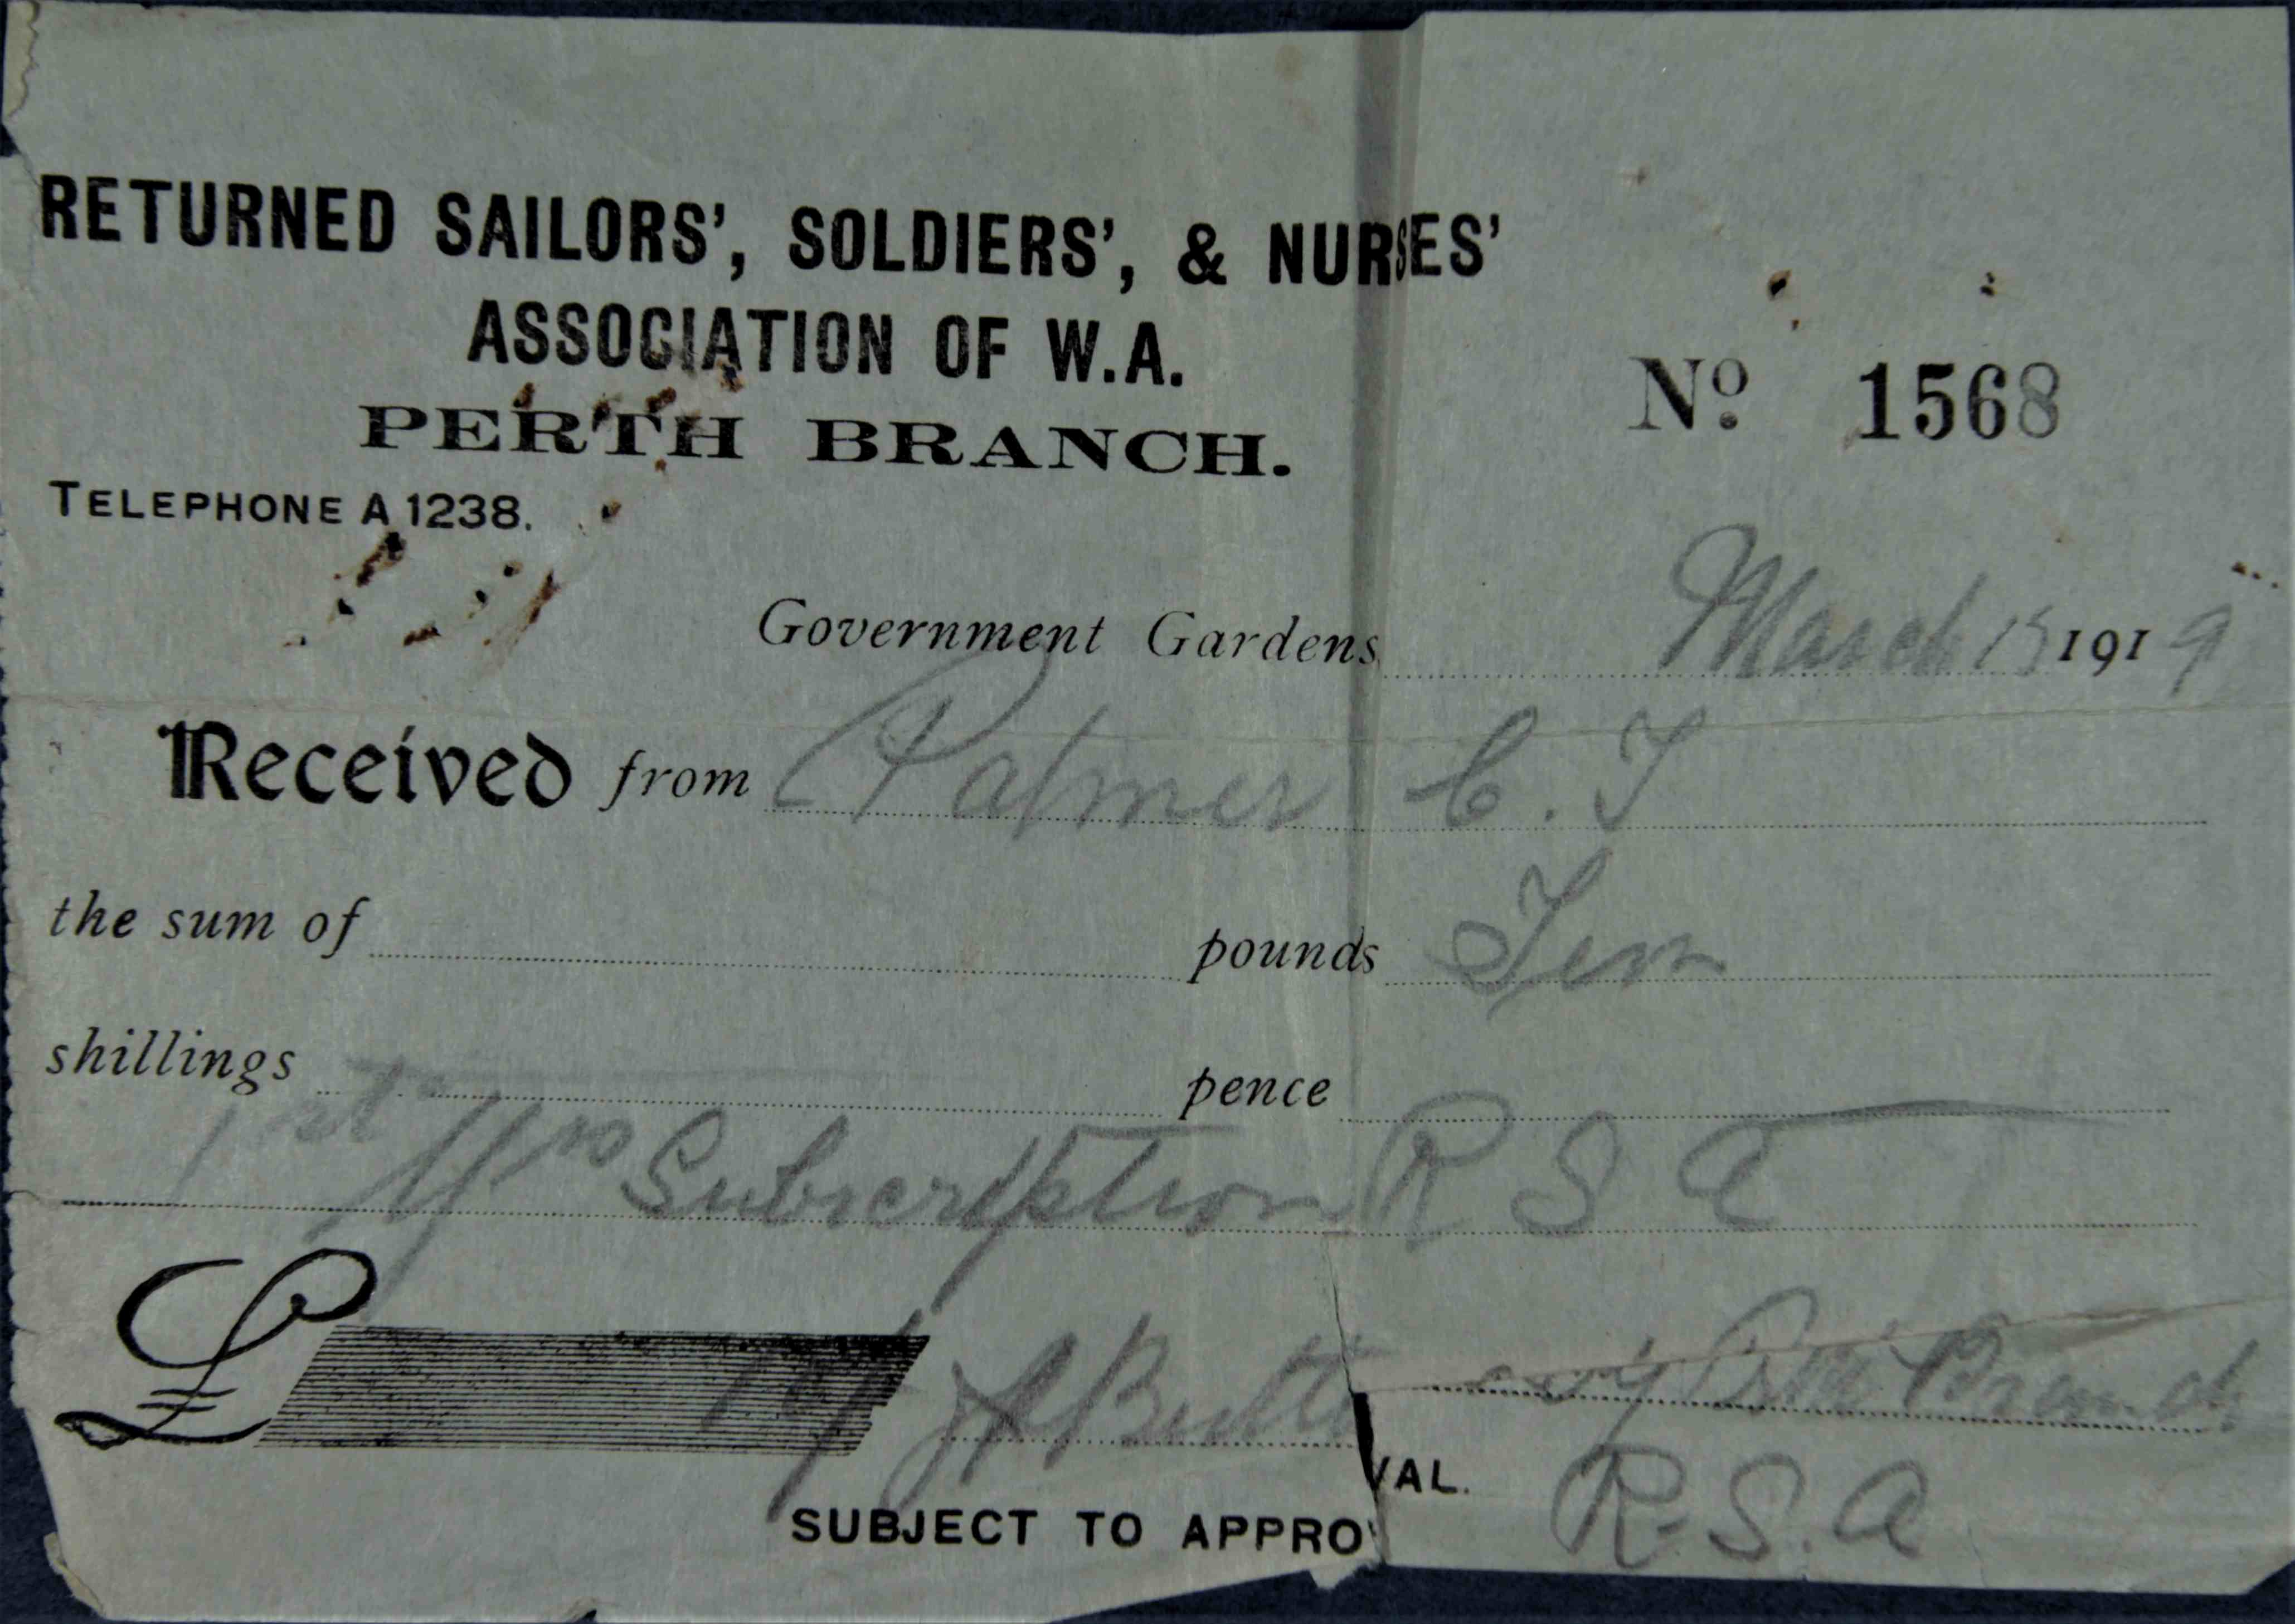 RETURNED SAILORS', SOLDIERS', & NURSES'
ASSOCIATION OF W.A.
PERTH BRANCH.
No. 1568
TELEPHONE A 1238.
Government Gardens March 1919
Received from Palmer C. T
the sum of pounds Ten
shillings pence
1st Subscription R S A
£ 10/ Branch
SUBJECT TO APPROVAL.
R.S.A